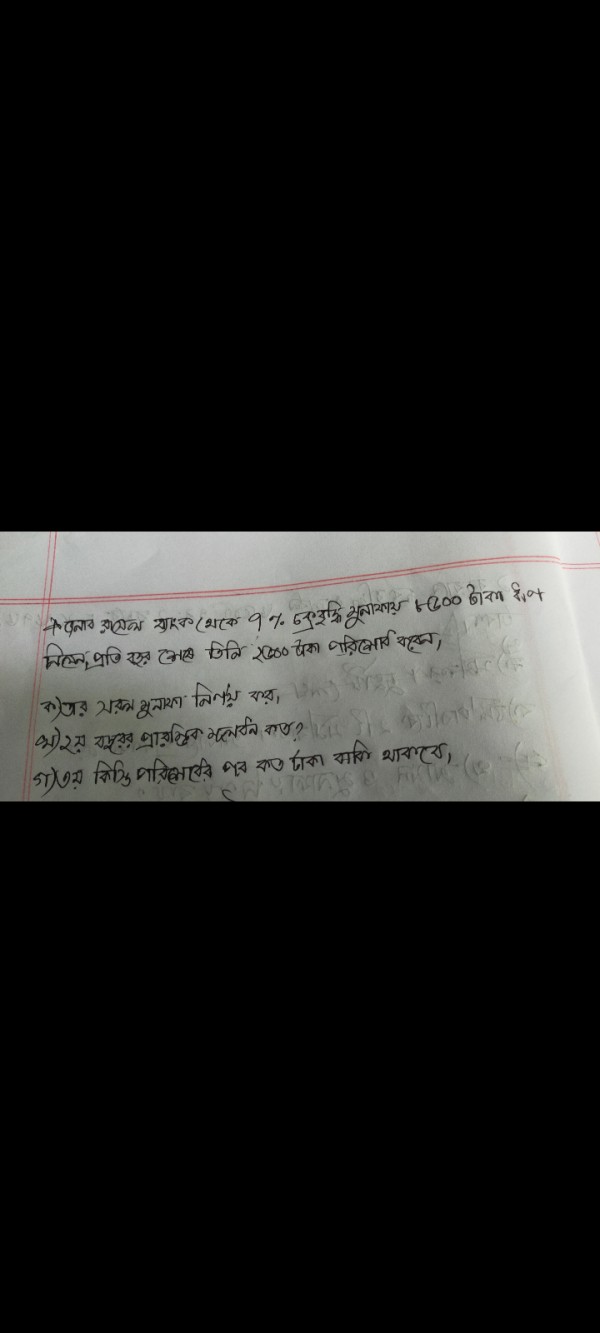 * জনাব রাসেল ব্যাংক থেকে ৭% চক্রবৃদ্ধি মুনাফায় ৮৫০০ টাকা ঋণ
নিলেন, প্রতি বছর শেষে তিনি ২৫০০ টাকা পরিশোধ করেন,
ক) এর সরল মুনাফা নির্ণয় কর,
খ) ২য় বছরের প্রারম্ভিক মূলধন কত?
গ) ৩য় কিস্তি পরিশোধের পর কত টাকা বাকি থাকবে,